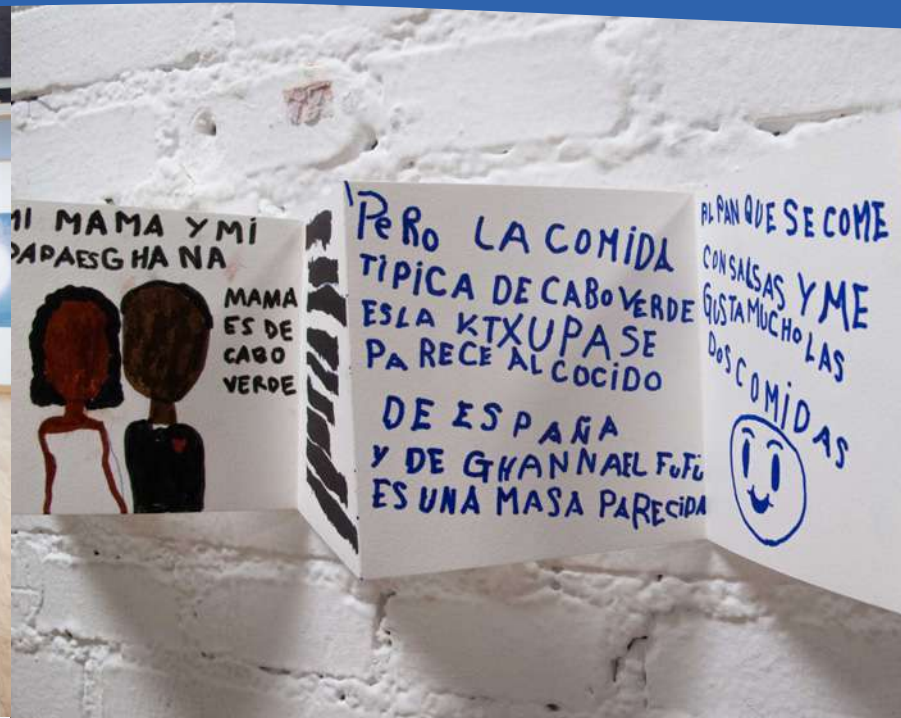 MI MAMA Y MI
PAPA ES GHANA
MAMA
ES DE
CABO
VERDE
PERO LA COMIDA
TIPICA DE CABO VERDE
ES LA KTXUPA SE
PARECE AL COCIDO
DE ESPAÑA
Y DE GHANNA EL FUFU
ES UNA MASA PARECIDA
AL PAN QUE SE COME
CON SALSAS Y ME
GUSTA MUCHO LAS
DOS COMIDAS